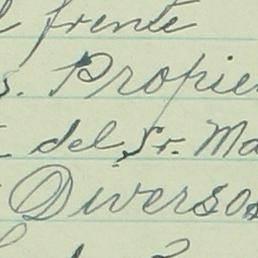 l frente
s. Propie
del Sr. Ma
Diversos